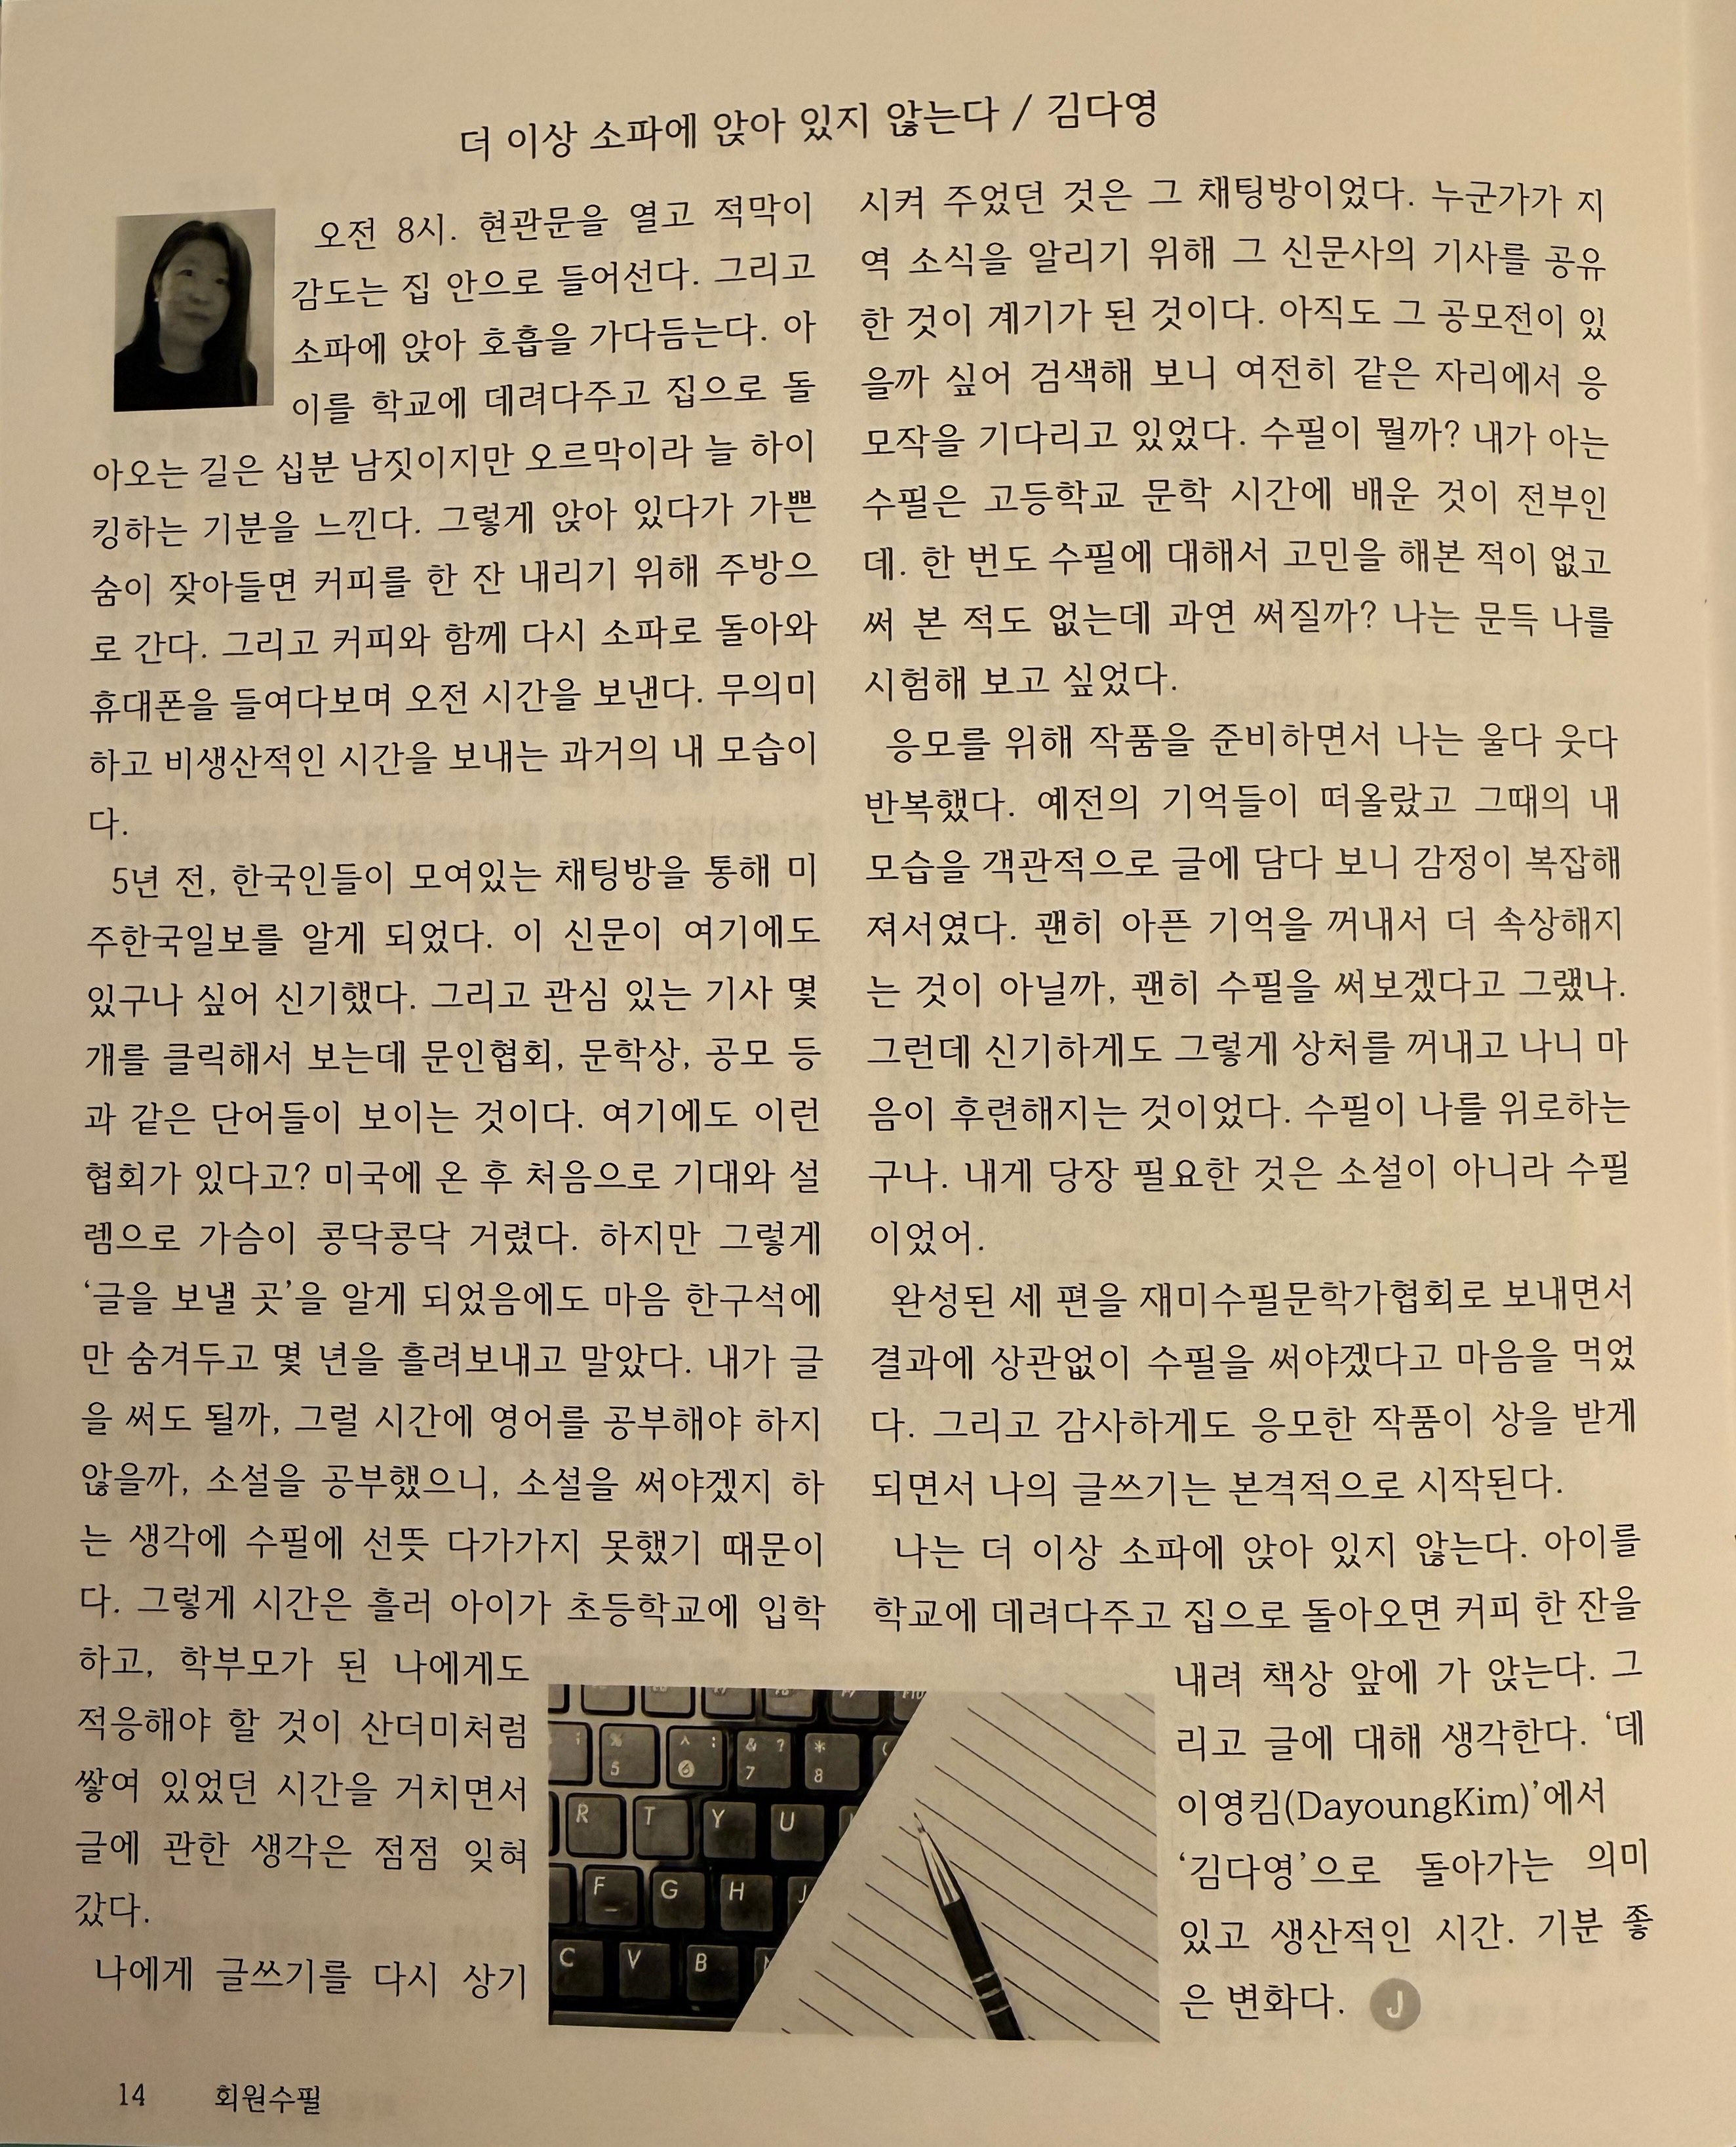 더 이상 소파에 앉아 있지 않는다 / 김다영
오전 8시. 현관문을 열고 적막이
감도는 집 안으로 들어선다. 그리고
소파에 앉아 호흡을 가다듬는다. 아
이를 학교에 데려다주고 집으로 돌
아오는 길은 십분 남짓이지만 오르막이라 늘 하이
킹하는 기분을 느낀다. 그렇게 앉아 있다가 가쁜
숨이 잦아들면 커피를 한 잔 내리기 위해 주방으
로 간다. 그리고 커피와 함께 다시 소파로 돌아와
휴대폰을 들여다보며 오전 시간을 보낸다. 무의미
하고 비생산적인 시간을 보내는 과거의 내 모습이
다.
5년 전, 한국인들이 모여있는 채팅방을 통해 미
주한국일보를 알게 되었다. 이 신문이 여기에도
있구나 싶어 신기했다. 그리고 관심 있는 기사 몇
개를 클릭해서 보는데 문인협회, 문학상, 공모 등
과 같은 단어들이 보이는 것이다. 여기에도 이런
협회가 있다고? 미국에 온 후 처음으로 기대와 설
렘으로 가슴이 콩닥콩닥 거렸다. 하지만 그렇게
‘글을 보낼 곳’을 알게 되었음에도 마음 한구석에
만 숨겨두고 몇 년을 흘려보내고 말았다. 내가 글
을 써도 될까, 그럴 시간에 영어를 공부해야 하지
않을까, 소설을 공부했으니, 소설을 써야겠지 하
는 생각에 수필에 선뜻 다가가지 못했기 때문이
다. 그렇게 시간은 흘러 아이가 초등학교에 입학
하고, 학부모가 된 나에게도
적응해야 할 것이 산더미처럼
쌓여 있었던 시간을 거치면서
글에 관한 생각은 점점 잊혀
갔다.
나에게 글쓰기를 다시 상기
시켜 주었던 것은 그 채팅방이었다. 누군가가 지
역 소식을 알리기 위해 그 신문사의 기사를 공유
한 것이 계기가 된 것이다. 아직도 그 공모전이 있
을까 싶어 검색해 보니 여전히 같은 자리에서 응
모작을 기다리고 있었다. 수필이 뭘까? 내가 아는
수필은 고등학교 문학 시간에 배운 것이 전부인
데. 한 번도 수필에 대해서 고민을 해본 적이 없고
써 본 적도 없는데 과연 써질까? 나는 문득 나를
시험해 보고 싶었다.
응모를 위해 작품을 준비하면서 나는 울다 웃다
반복했다. 예전의 기억들이 떠올랐고 그때의 내
모습을 객관적으로 글에 담다 보니 감정이 복잡해
져서였다. 괜히 아픈 기억을 꺼내서 더 속상해지
는 것이 아닐까, 괜히 수필을 써보겠다고 그랬나.
그런데 신기하게도 그렇게 상처를 꺼내고 나니 마
음이 후련해지는 것이었다. 수필이 나를 위로하는
구나. 내게 당장 필요한 것은 소설이 아니라 수필
이었어.
완성된 세 편을 재미수필문학가협회로 보내면서
결과에 상관없이 수필을 써야겠다고 마음을 먹었
다. 그리고 감사하게도 응모한 작품이 상을 받게
되면서 나의 글쓰기는 본격적으로 시작된다.
나는 더 이상 소파에 앉아 있지 않는다. 아이를
학교에 데려다주고 집으로 돌아오면 커피 한 잔을
내려 책상 앞에 가 앉는다. 그
리고 글에 대해 생각한다. ‘데
이영킴(DayoungKim)’에서
‘김다영’으로 돌아가는 의미
있고 생산적인 시간. 기분 좋
은 변화다. J
% ^ : & ? * (
5 6 7 8
R T Y U
F G H J
C V B
14 회원수필